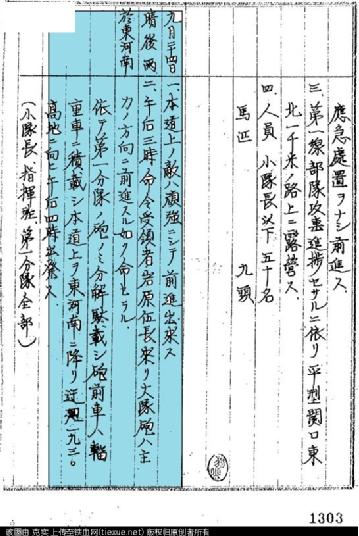 應急處置ヲナシ前進ス
三、第一線部隊攻惠進捗セザルニ依リ平型関口東
北一千米ノ路上ニ露営ス
四、人員 小隊長以下 五十名
馬匹 九頭
九月二十四日
晴後雨
於東河南
一、本道上ノ敵ハ頑強ニシテ前進出来ス
二、午后三時命令受領者岩原伍長来リ大隊砲ハ主
力ノ方向ニ前進スル如ク命セラル
依テ第一分隊ノ砲ノミ分解駄載シ砲前車ハ輜
重車ニ積載シ本道上ヲ東河南ニ降リ迂廻一九三〇
高地ニ向ヒ午后四時出発ス
(小隊長、指揮班、第一分隊全部)
1303
磁图由 克实 上传至铁血网(tiexue.net) 版权归原创者所有